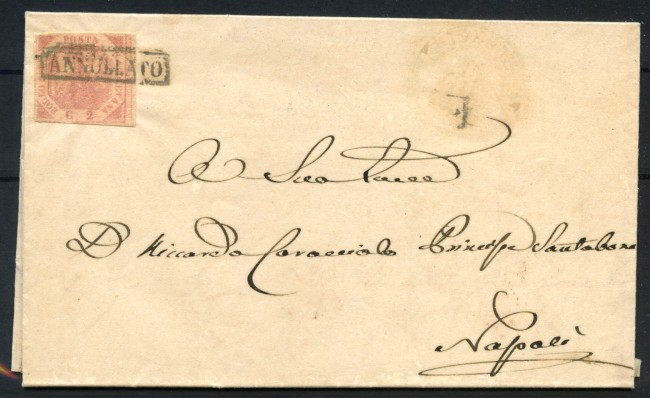 POSTA
ANNULLATO
G 2
A Sua
D. Riccardo Caracciolo Principe Santobono
Napoli